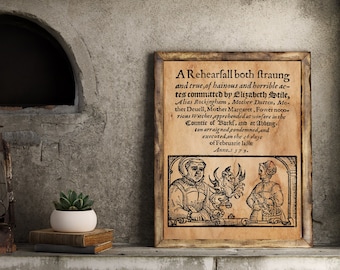 A Rehearsall both straung
and true, of hainous and horrible ac-
tes committed by Elizabeth Stile,
Alias Rockingham, Mother Dutten, Mo-
ther Deuell, Mother Margaret, Fower noto-
rious Witches, apprehended at winsore in the
Countie of Barks. and at Abbing-
ton arraigned, condemned, and
executed, on the 26 daye
of Februarie laste
Anno. 1579.